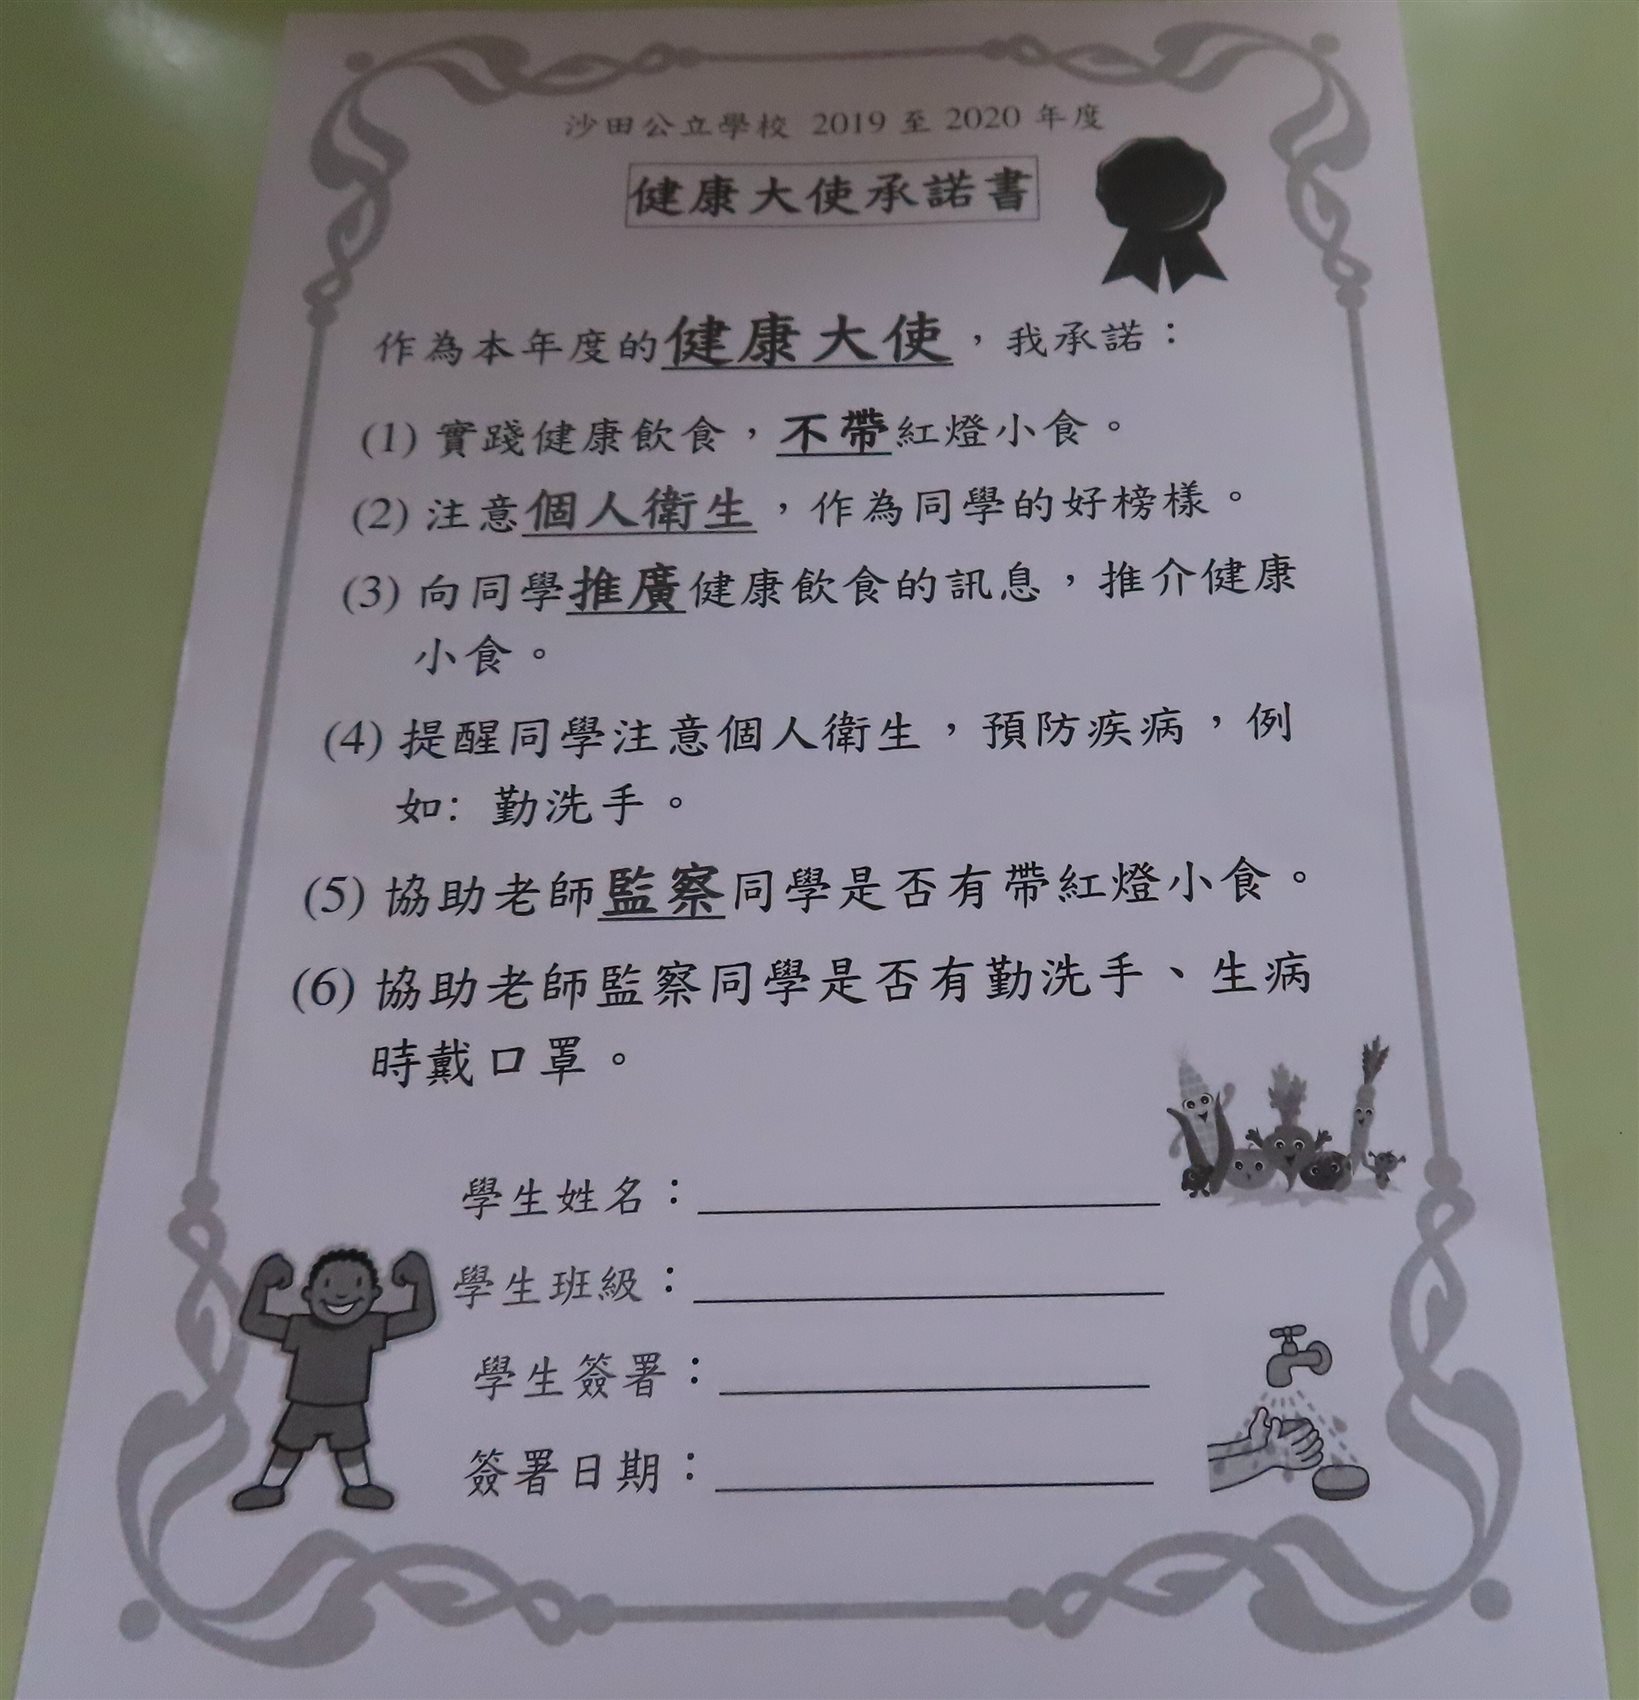 沙田公立學校 2019 至 2020 年度
健康大使承諾書
作為本年度的健康大使，我承諾：
(1) 實踐健康飲食，不帶紅燈小食。
(2) 注意個人衛生，作為同學的好榜樣。
(3) 向同學推廣健康飲食的訊息，推介健康
小食。
(4) 提醒同學注意個人衛生，預防疾病，例
如: 勤洗手。
(5) 協助老師監察同學是否有帶紅燈小食。
(6) 協助老師監察同學是否有勤洗手、生病
時戴口罩。
學生姓名：
學生班級：
學生簽署：
簽署日期：